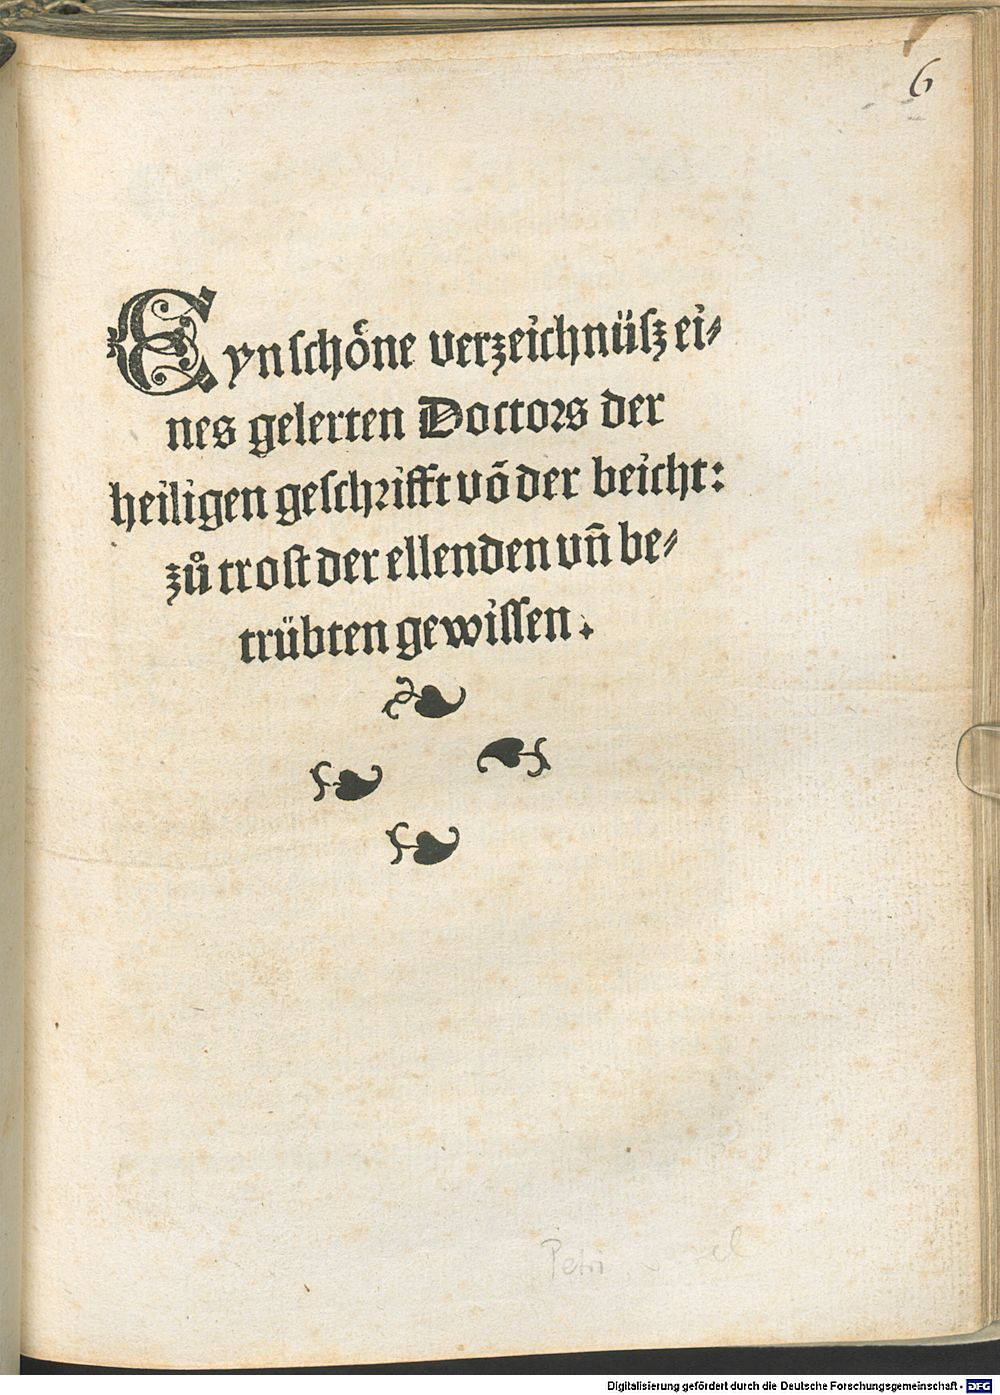 6
Eyn schöne verzeichnüsz ei⸗
nes gelerten Doctors der
heiligen geschrifft võ der beicht:
zů trost der ellenden vñ be⸗
trübten gewissen.
Petri
Digitalisierung gefördert durch die Deutsche Forschungsgemeinschaft - DFG